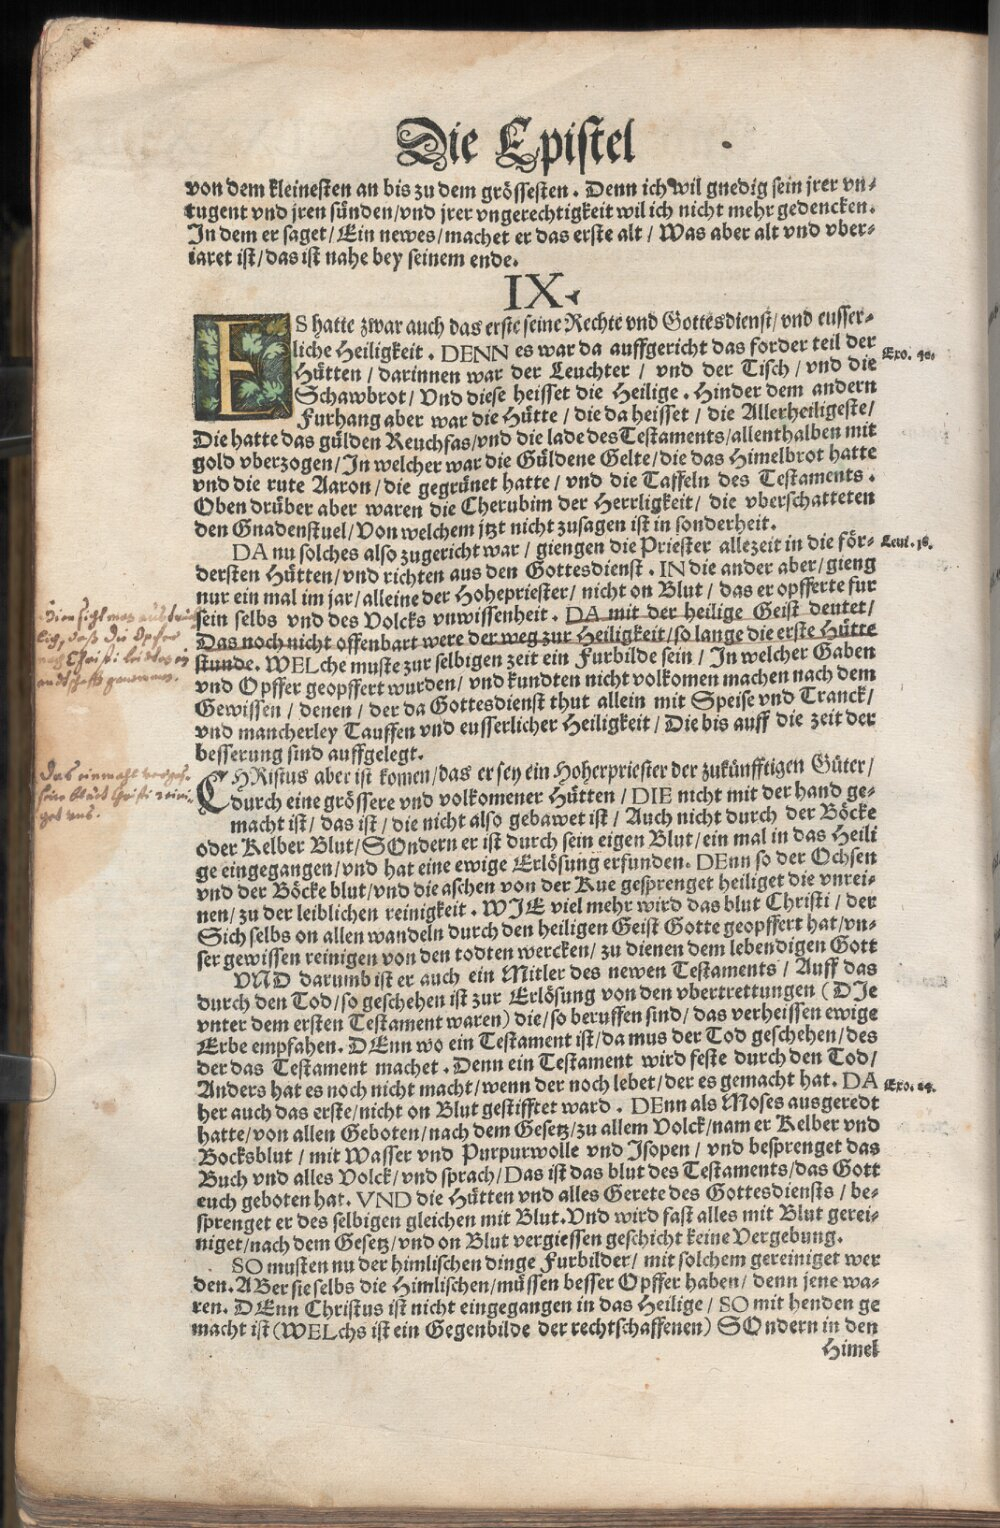 Die Epistel
von dem kleinesten an bis zu dem grössesten. Denn ich wil gnedig sein jrer vn-
tugent vnd jren sünden/vnd jrer vngerechtigkeit wil ich nicht mehr gedencken.
In dem er saget/Ein newes/machet er das erste alt/Was aber alt vnd vber-
iaret ist/das ist nahe bey seinem ende.
IX.
ES hatte zwar auch das erste seine Rechte vnd Gottesdienst/vnd eusser-
liche Heiligkeit. DENN es war da auffgericht das forder teil der
Exo. 40.
Hütten/darinnen war der Leuchter/vnd der Tisch/vnd die
Schawbrot/Vnd diese heisset die Heilige. Hinder dem andern
Furhang aber war die Hütte/die da heisset/die Allerheiligeste/
Die hatte das gülden Reuchfas/vnd die lade des Testaments/allenthalben mit
gold vberzogen/In welcher war die Güldene Gelte/die das Himelbrot hatte
vnd die rute Aaron/die gegrünet hatte/vnd die Taffeln des Testaments.
Oben drüber aber waren die Cherubim der Herrligkeit/die vberschatteten
den Gnadenstuel/Von welchem jtzt nicht zusagen ist in sonderheit.
DA nu solches also zugericht war/giengen die Priester allezeit in die för-
Leui. 16.
dersten Hütten/vnd richten aus den Gottesdienst. IN die ander aber/gieng
nur ein mal im jar/alleine der Hohepriester/nicht on Blut/das er opfferte fur
sein selbs vnd des Volcks vnwissenheit. DA mit der heilige Geist deutet/
Das noch nicht offenbart were der weg zur Heiligkeit/so lange die erste Hütte
daß die Opfer
Christi
stunde. WELche muste zur selbigen zeit ein Furbilde sein/In welcher Gaben
vnd Opffer geopffert wurden/vnd kundten nicht volkomen machen nach dem
Gewissen/denen/der da Gottesdienst thut allein mit Speise vnd Tranck/
vnd mancherley Tauffen vnd eusserlicher Heiligkeit/Die bis auff die zeit der
besserung sind auffgelegt.
CHRistus aber ist komen/das er sey ein Hoherpriester der zukünfftigen Güter/
Das einmahl
blut Christi reini-
get uns.
durch eine grössere vnd volkomener Hütten/DIE nicht mit der hand ge-
macht ist/das ist/die nicht also gebawet ist/Auch nicht durch der Böcke
oder Kelber Blut/SOndern er ist durch sein eigen Blut/ein mal in das Heili
ge eingegangen/vnd hat eine ewige Erlösung erfunden. DEnn so der Ochsen
vnd der Böcke blut/vnd die aschen von der Kue gesprenget heiliget die vnrei-
nen/zu der leiblichen reinigkeit. WIE viel mehr wird das blut Christi/der
Sich selbs on allen wandeln durch den heiligen Geist Gotte geopffert hat/vn-
ser gewissen reinigen von den todten wercken/zu dienen dem lebendigen Gott
VND darumb ist er auch ein Mitler des newen Testaments/Auff das
durch den Tod/so geschehen ist zur Erlösung von den vbertrettungen (DIe
vnter dem ersten Testament waren) die/so beruffen sind/das verheissen ewige
Erbe empfahen. DEnn wo ein Testament ist/da mus der Tod geschehen/des
der das Testament machet. Denn ein Testament wird feste durch den Tod/
Anders hat es noch nicht macht/wenn der noch lebet/der es gemacht hat. DA
Exo. 24.
her auch das erste/nicht on Blut gestifftet ward. DEnn als Moses ausgeredt
hatte/von allen Geboten/nach dem Gesetz/zu allem Volck/nam er Kelber vnd
Bocksblut/mit Wasser vnd Purpurwolle vnd Isopen/vnd besprenget das
Buch vnd alles Volck/vnd sprach/Das ist das blut des Testaments/das Gott
euch geboten hat. VND die Hütten vnd alles Gerete des Gottesdiensts/be-
sprenget er des selbigen gleichen mit Blut. Vnd wird fast alles mit Blut gerei-
niget/nach dem Gesetz/vnd on Blut vergiessen geschicht keine Vergebung.
SO musten nu der himlischen dinge Furbilder/mit solchem gereiniget wer
den. ABer sie selbs die Himlischen/müssen besser Opffer haben/denn jene wa-
ren. DEnn Christus ist nicht eingegangen in das Heilige/SO mit henden ge
macht ist (WELchs ist ein Gegenbilde der rechtschaffenen) SOndern in den
Himel